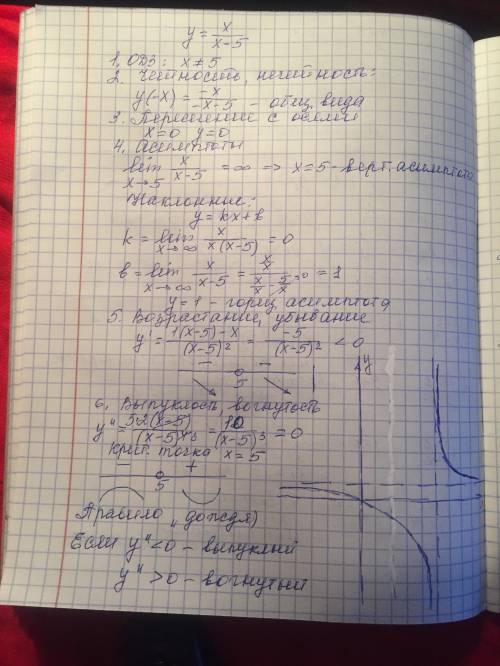 y = x/(x-5)
1. ОДЗ: x ≠ 5
2. Четность, нечетность:
y(-x) = -x/(-x-5) - общ. вида
3. Пересечение с осями
x=0 y=0
4. Асимптоты
lim x→5 x/(x-5) = ∞ => x=5 - верт. асимптота
Наклонные:
y = kx + b
k = lim x→∞ x/(x(x-5)) = 0
b = lim x→∞ x/(x-5) = (x/x)/(x/x - 5/x→0) = 1
y=1 - гориз. асимптота
5. Возрастание, убывание
y' = (1(x-5)-x)/(x-5)² = -5/(x-5)² < 0
- -
5
6. Выпуклость, вогнутость
y'' = 5·2(x-5)/(x-5)⁴3 = 10/(x-5)³ = 0
Крит. точка x = 5
- +
5
y
Правило „дождя)
Если y'' < 0 - выпуклый
y'' > 0 - вогнутый